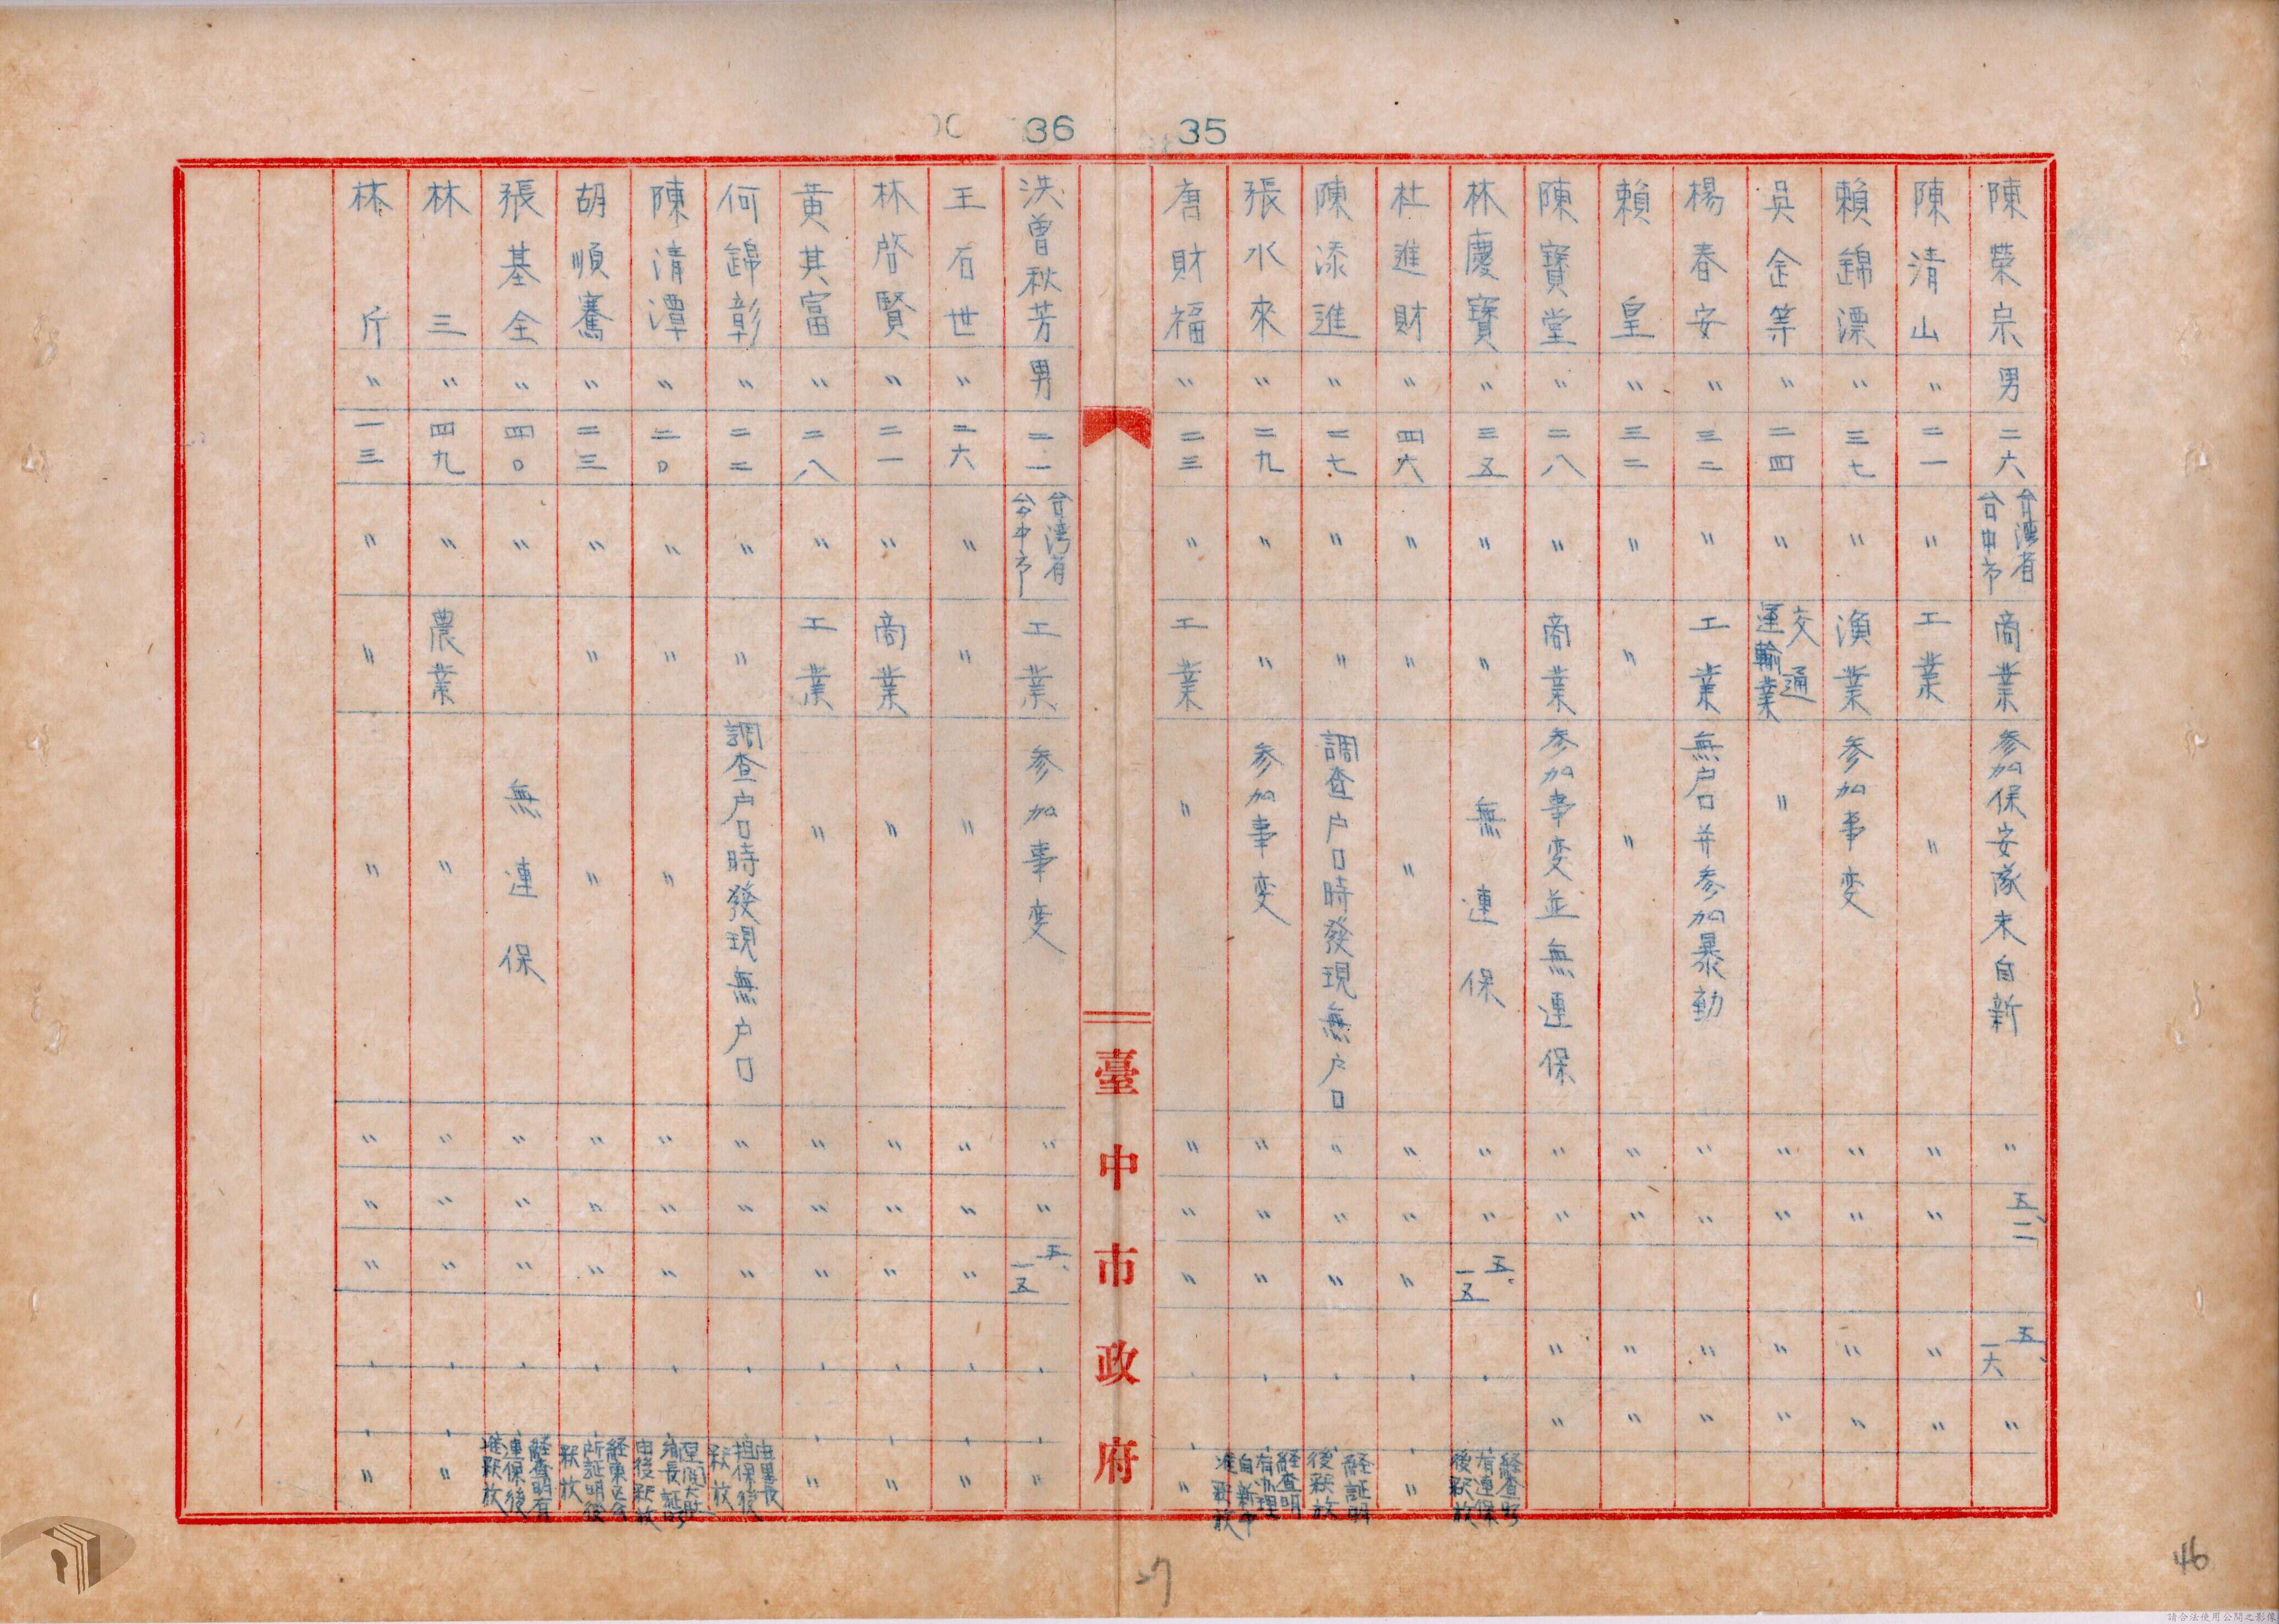 36
35
陳榮宗 男 二六 台灣省台中市 商業 参加保安隊未自新 〃 五、二 五、一六 〃
陳清山 〃 二一 〃 工業 〃 〃 〃 〃 〃
賴錦漂 〃 三七 〃 漁業 参加事変 〃 〃 〃 〃
吳金等 〃 二四 〃 交通運輸業 〃 〃 〃 〃 〃
楊春安 〃 三二 〃 工業 無户口并参加暴動 〃 〃 〃 〃
賴皇 〃 三二 〃 〃 〃 〃 〃 〃 〃
陳寶堂 〃 二八 〃 商業 参加事变並無連保 〃 〃 〃 〃
林慶寶 〃 三五 〃 〃 無連保 〃 〃 五、一五 、 経查明有連保後釈放
杜進財 〃 四六 〃 〃 〃 〃 〃 〃 、 、 〃
陳添進 〃 二七 〃 〃 調查户口時發現無户口 〃 〃 〃 、 経証明後釈放
張水來 〃 二九 〃 〃 参加事変 〃 〃 〃 、 経查明有办理自新中准釈放
唐財福 〃 二三 〃 工業 〃 〃 〃 〃 、 、 〃
臺中市政府
洪曾秋芳 男 二一 台湾省台中市 工業 参加事变 〃 〃 五、一五 、 、 〃
王石世 〃 二六 〃 〃 〃 〃 〃 〃 、 、 〃
林啓賢 〃 二一 〃 商業 〃 〃 〃 〃 、 、 〃
黄其富 〃 二八 〃 工業 〃 〃 〃 〃 、 、 〃
何錦彰 〃 二二 〃 〃 調查户口時發現無户口 〃 〃 〃 、 由里長担保後釈放
陳清潭 〃 二〇 〃 〃 〃 〃 〃 〃 、
胡順騫 〃 二三 〃 〃 〃 〃 〃 〃 、 所証明後釈放
張基全 〃 四〇 〃 無連保 〃 〃 〃 、 経查明有連保後准釈放
林三 〃 四九 〃 農業 〃 〃 〃 〃 、 、 〃
林斤 〃 一三 〃 〃 〃 〃 〃 〃 、 、 〃
46
請合法使用公開之影像